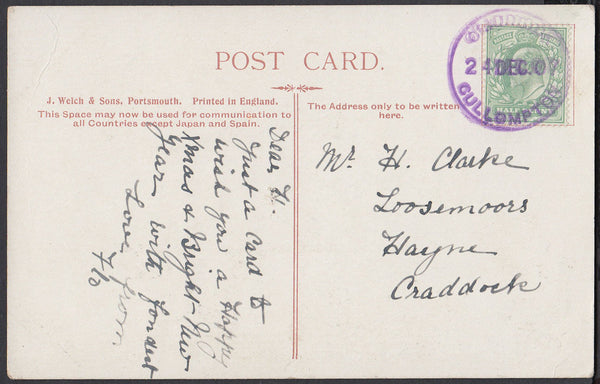 POST CARD.
J. Welch & Sons, Portsmouth. Printed in England.
This Space may now be used for communication to
all Countries except Japan and Spain.
The Address only to be written
here.
Dear H.
Just a card to
wish you a Happy
Xmas & Bright New
Year with fondest
Love from
24 DEC. 07
CULLOMPTON
HALF
Mr H. Clarke
Loosemoors
Hayne
Craddock